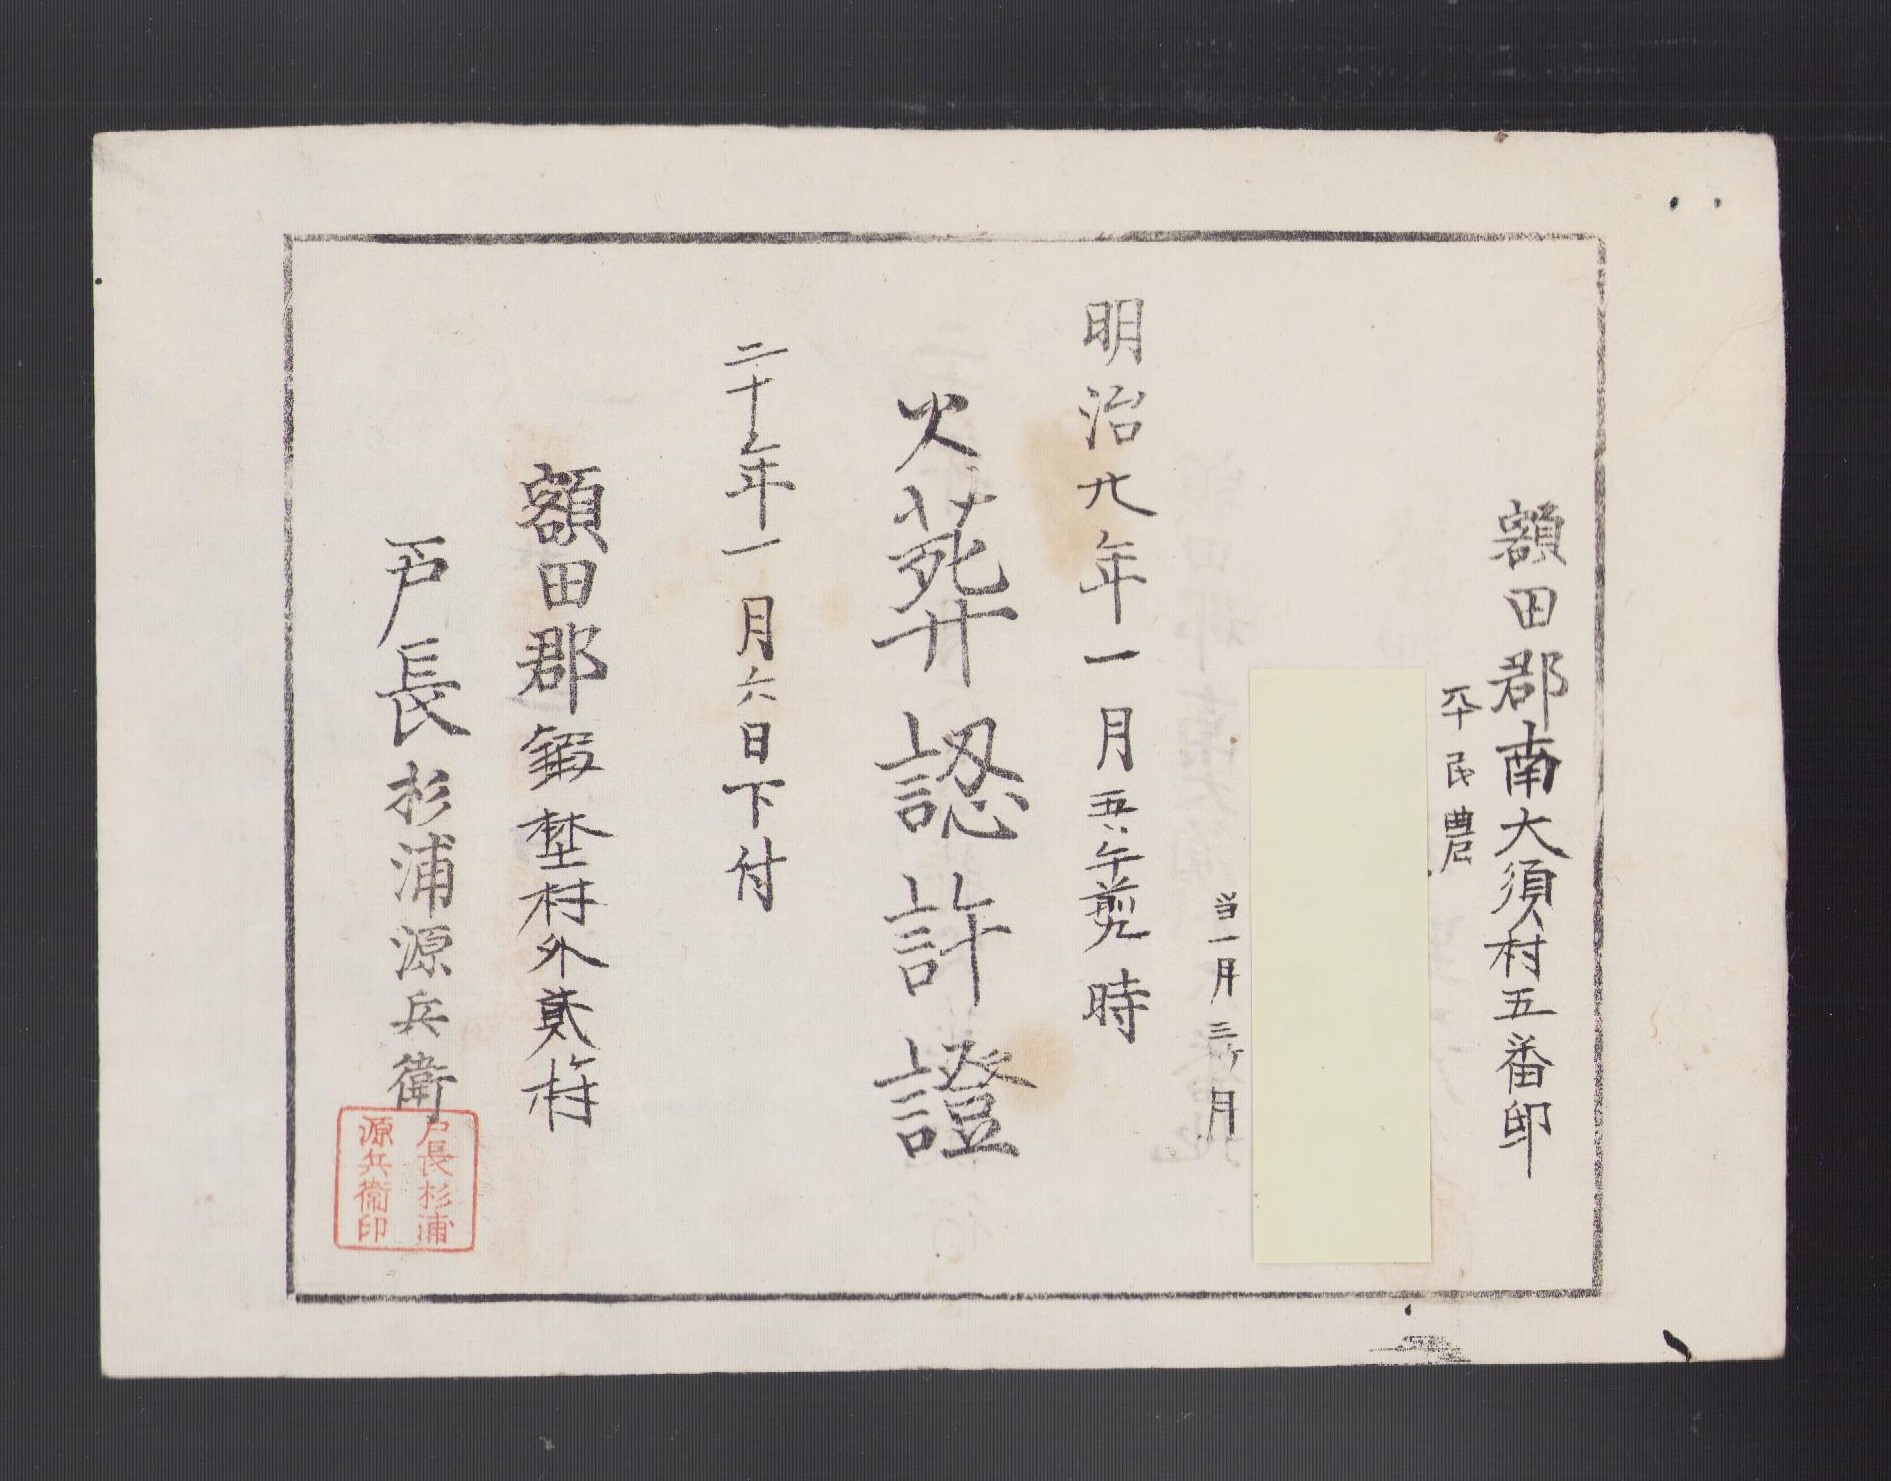 額田郡南大須村五番印
平民農
当一月三ヶ月
明治廿年一月五日午前九時
火葬認許證
二十年一月六日下付
額田郡鍛埜村外貳ヶ村
戸長杉浦源兵衛
戸長杉浦
源兵衛印